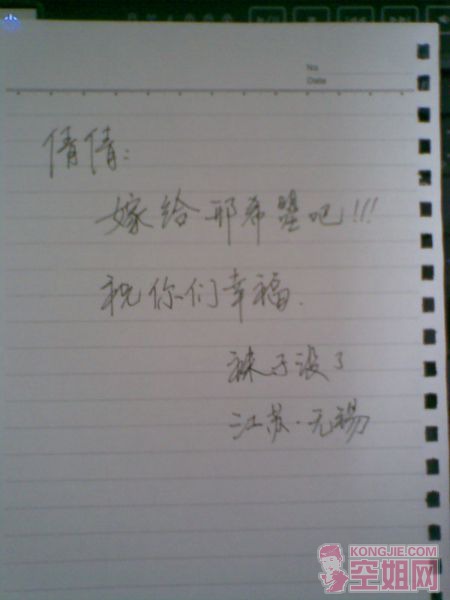 No
Date
倩倩:
嫁给邢希望吧!!!
祝你们幸福.
袜子没了
江苏·无锡
KONGJIE.COM
空姐网